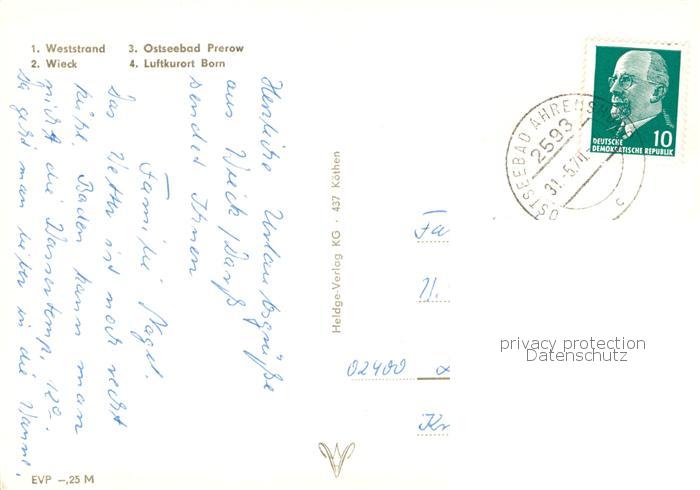 1. Weststrand
2. Wieck
3. Ostseebad Prerow
4. Luftkurort Born
Herzliche Urlaubsgrüße
aus Wieck/Darß
sendet Ihnen
Familie Nagel.
Das Wetter ist noch recht
kühl. Baden kann man
nicht die Wassertemp. 12°.
Da geht man lieber in die Wanne.
EVP –,25 M
Heldge-Verlag KG · 437 Köthen
OSTSEEBAD AHRENS
2593
31.-5.71
c
10
DEUTSCHE
DEMOKRATISCHE REPUBLIK
Fa
02400
Kr
privacy protection
Datenschutz